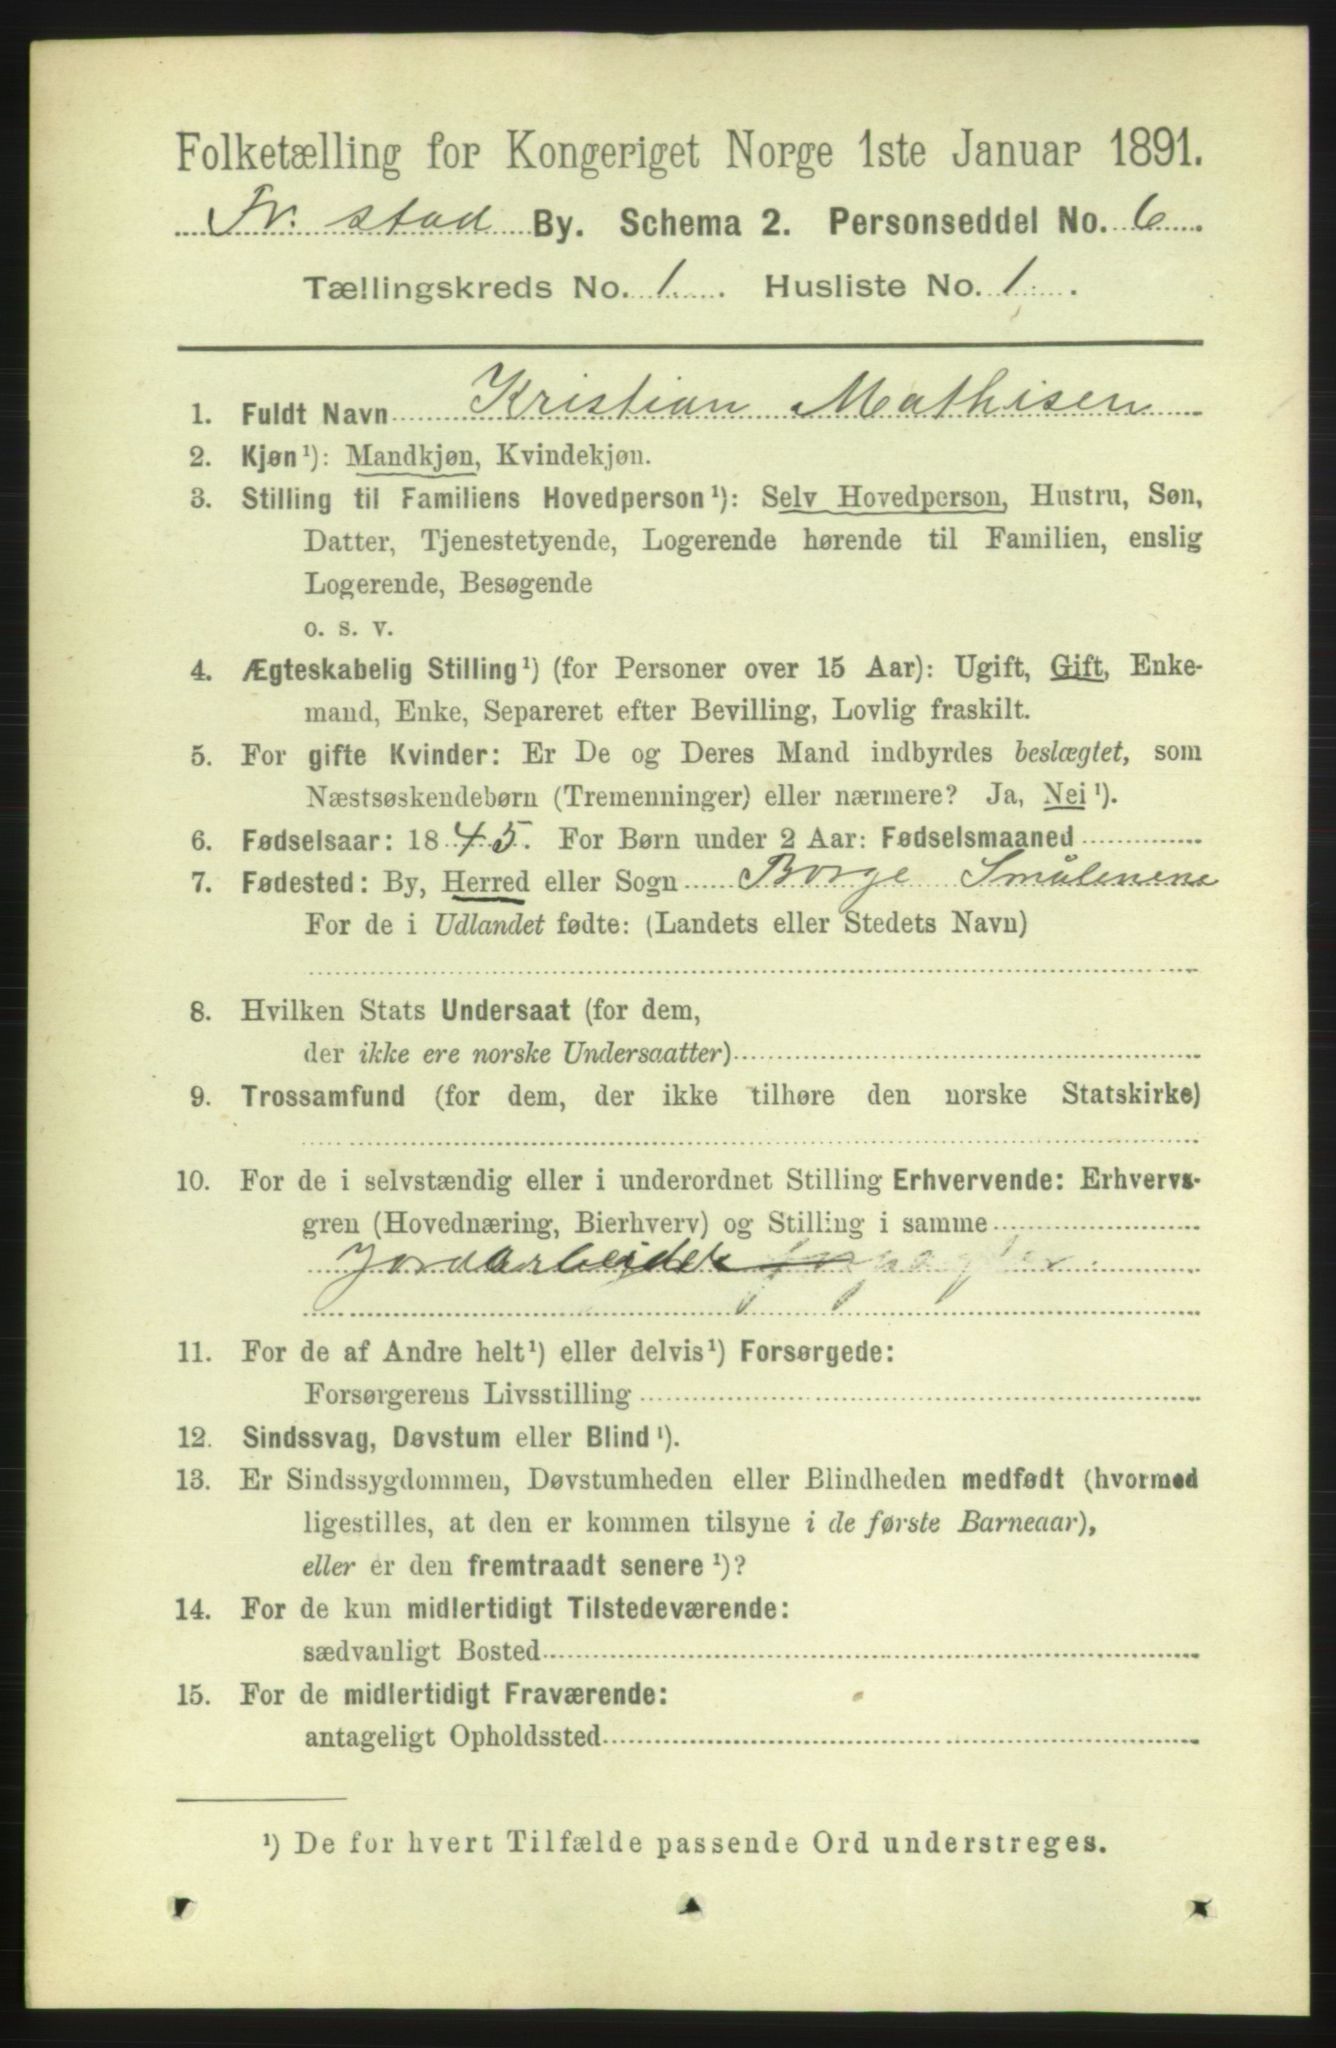 Folketælling for Kongeriget Norge 1ste Januar 1891.
Fr. stad By. Schema 2. Personseddel No. 6
Tællingskreds No. 1. Husliste No. 1.
1. Fuldt Navn Kristian Mathisen
2. Kjøn¹): Mandkjøn, Kvindekjøn.
3. Stilling til Familiens Hovedperson¹): Selv Hovedperson, Hustru, Søn,
Datter, Tjenestetyende, Logerende hørende til Familien, enslig
Logerende, Besøgende
o. s. v.
4. Ægteskabelig Stilling¹) (for Personer over 15 Aar): Ugift, Gift, Enke-
mand, Enke, Separeret efter Bevilling, Lovlig fraskilt.
5. For gifte Kvinder: Er De og Deres Mand indbyrdes beslægtet, som
Næstsøskendebørn (Tremenninger) eller nærmere? Ja, Nei¹).
6. Fødselsaar: 1845. For Børn under 2 Aar: Fødselsmaaned
7. Fødested: By, Herred eller Sogn Borge Smålenene
For de i Udlandet fødte: (Landets eller Stedets Navn)
8. Hvilken Stats Undersaat (for dem,
der ikke ere norske Undersaatter)
9. Trossamfund (for dem, der ikke tilhøre den norske Statskirke)
10. For de i selvstændig eller i underordnet Stilling Erhvervende: Erhvervs-
gren (Hovednæring, Bierhverv) og Stilling i samme
Jordarbeider
11. For de af Andre helt¹) eller delvis¹) Forsørgede:
Forsørgerens Livsstilling
12. Sindssvag, Døvstum eller Blind¹).
13. Er Sindssygdommen, Døvstumheden eller Blindheden medfødt (hvormed
ligestilles, at den er kommen tilsyne i de første Barneaar),
eller er den fremtraadt senere¹)?
14. For de kun midlertidigt Tilstedeværende:
sædvanligt Bosted
15. For de midlertidigt Fraværende:
antageligt Opholdssted
¹) De for hvert Tilfælde passende Ord understreges.